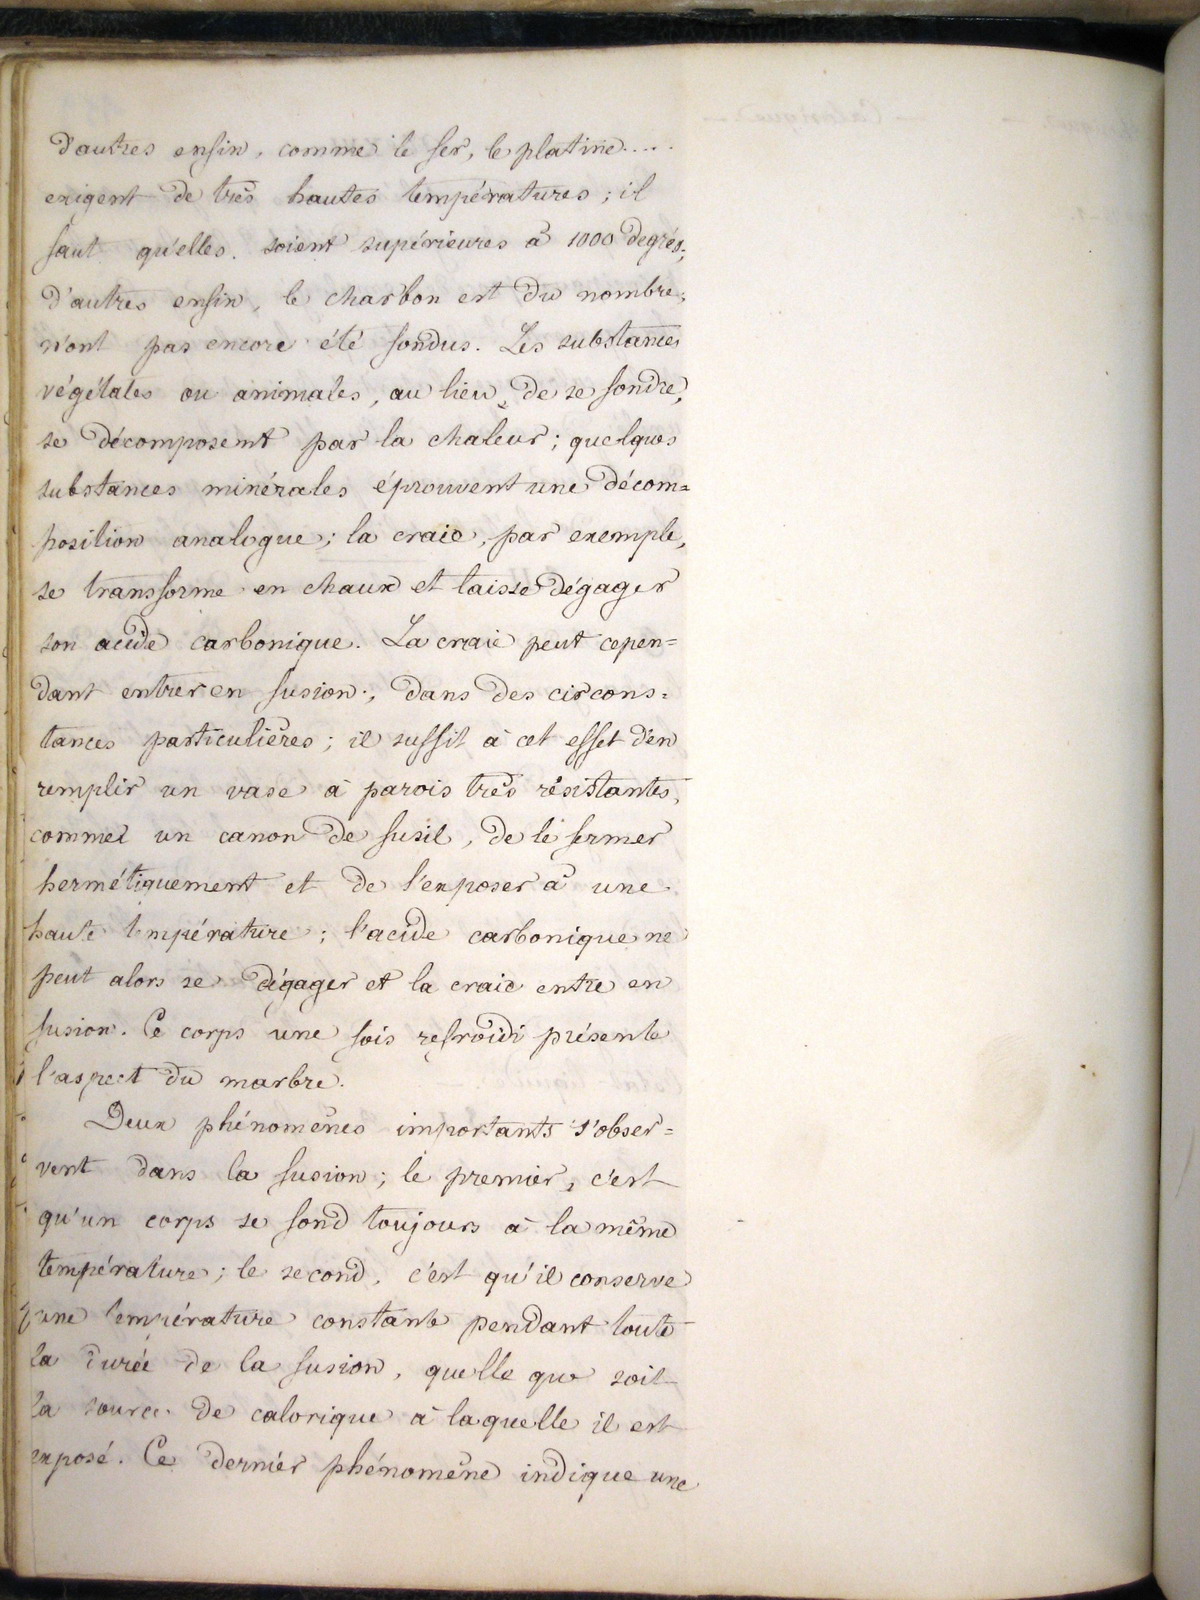 d'autres enfin, comme le fer, le platine.....
exigent de très hautes températures ; il
faut qu'elles soient supérieures à 1000 degrés ;
d'autres enfin, le charbon est du nombre,
n'ont pas encore été fondus. Les substances
végétales ou animales, au lieu de se fondre,
se décomposent par la chaleur ; quelques
substances minérales éprouvent une décom=
position analogue ; la craie, par exemple,
se transforme en chaux et laisse dégager
son acide carbonique. La craie peut cepen=
dant entrer en fusion, dans des circons=
tances particulières ; il suffit à cet effet d'en
remplir un vase à parois très résistantes,
comme un canon de fusil, de le fermer
hermétiquement et de l'exposer à une
haute température ; l'acide carbonique ne
peut alors se dégager et la craie entre en
fusion. Ce corps une fois refroidi présente
l'aspect du marbre.
Deux phénomènes importants s'obser=
vent dans la fusion ; le premier, c'est
qu'un corps se fond toujours à la même
température ; le second, c'est qu'il conserve
une température constante pendant toute
la durée de la fusion, quelle que soit
la source de calorique à laquelle il est
exposé. Ce dernier phénomène indique une